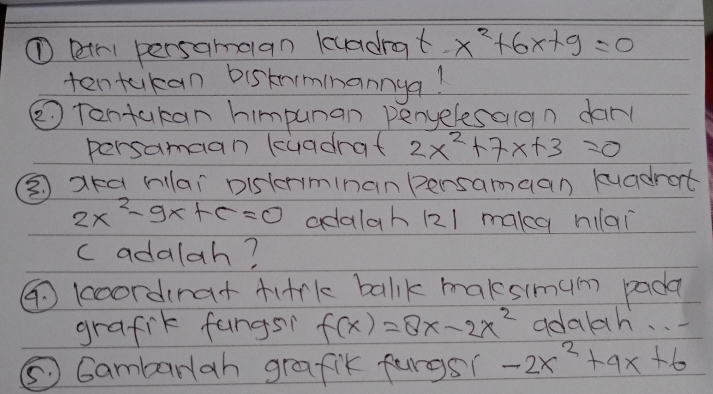 ① Dari persamaan kuadrat x²+6x+9=0
tentukan Diskriminannya!
②. Tentukan himpunan Penyelesaian dari
persamaan kuadrat 2x²+7x+3=0
③. Jika nilai Diskriminan Persamaan kuadrat
2x²-9x+c=0 adalah 121 maka nilai
c adalah?
④. koordinat titik balik maksimum pada
grafik fungsi f(x)=8x-2x² adalah...
⑤. Gambarlah grafik fungsi -2x²+4x+6